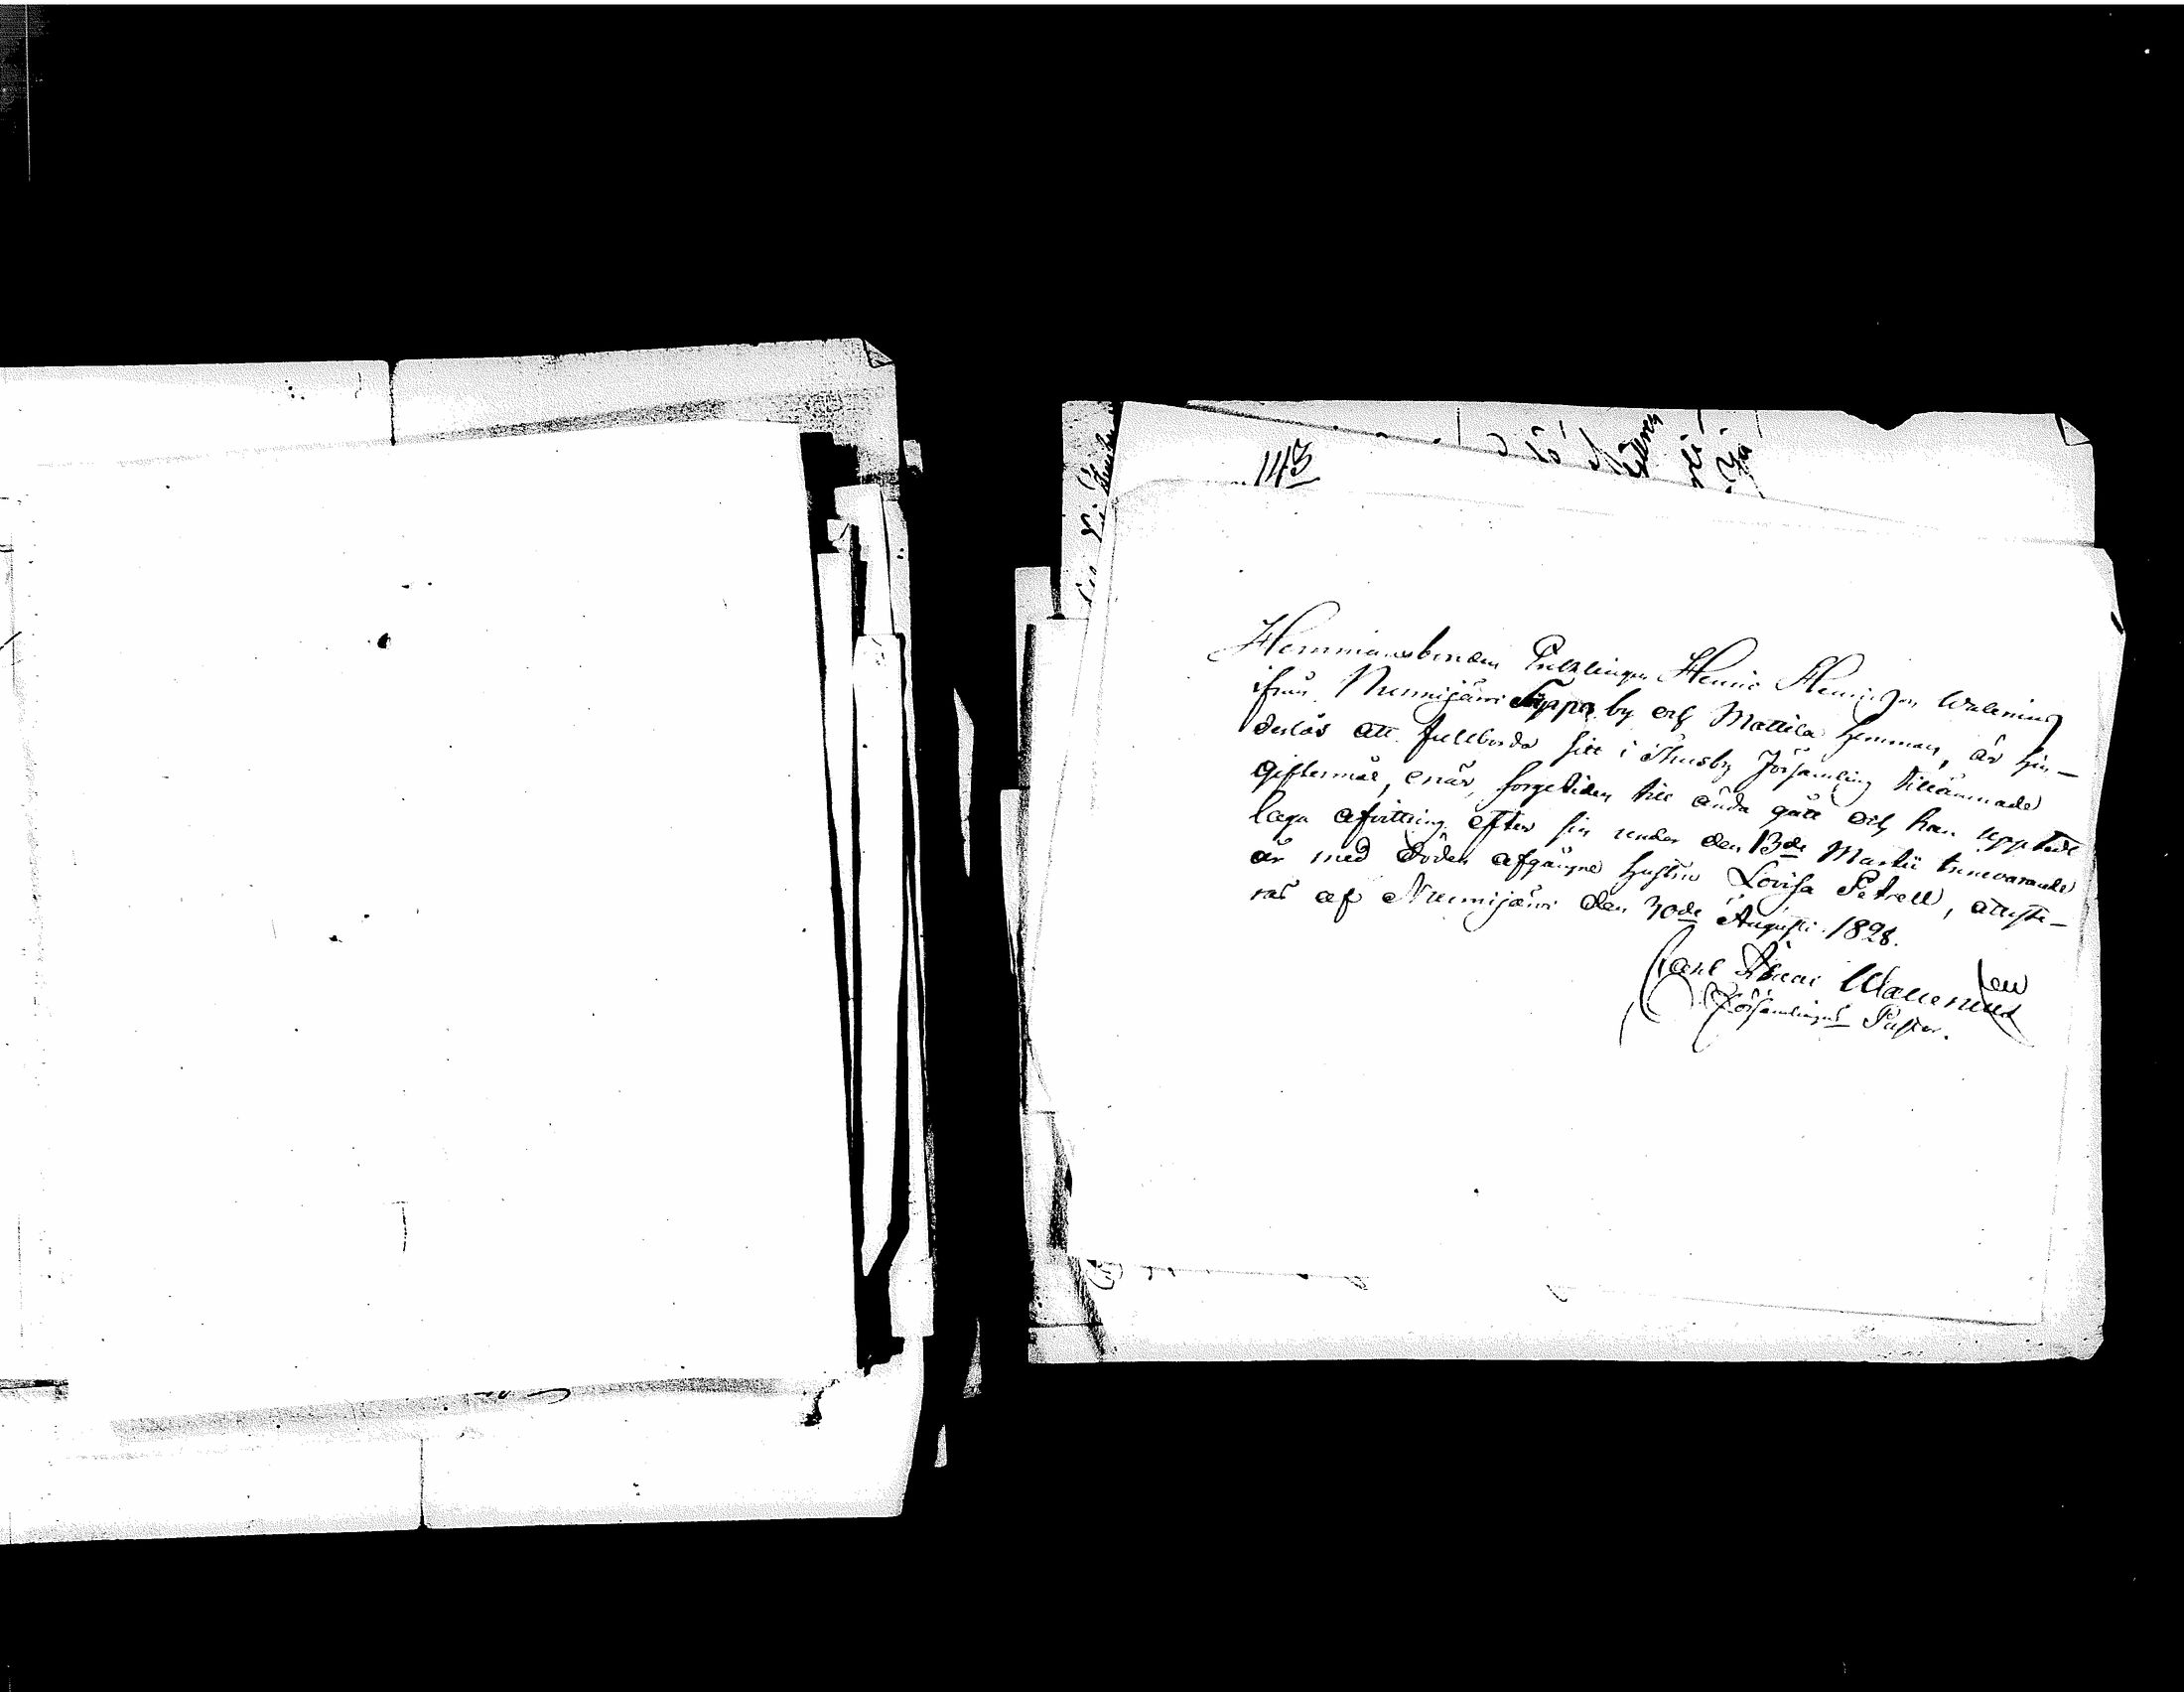 143
Hemmansbonden Enklingen Henric Henricson Walenius
ifrån Nurmijärvi Seppä by och Mattila hemman, är hin-
derlös att fullborda sitt i Thusby Församling tillämnade
giftermål, enär, sorgetiden till ända gått och han uppbed
laga afvittring efter sin under den 13de Martii innevarande
år med döden afgångne hustru Lovisa Petrell, atteste-
ras af Nurmijärvi den 30de Augusti 1828.
Carl
Församlings Pastor.